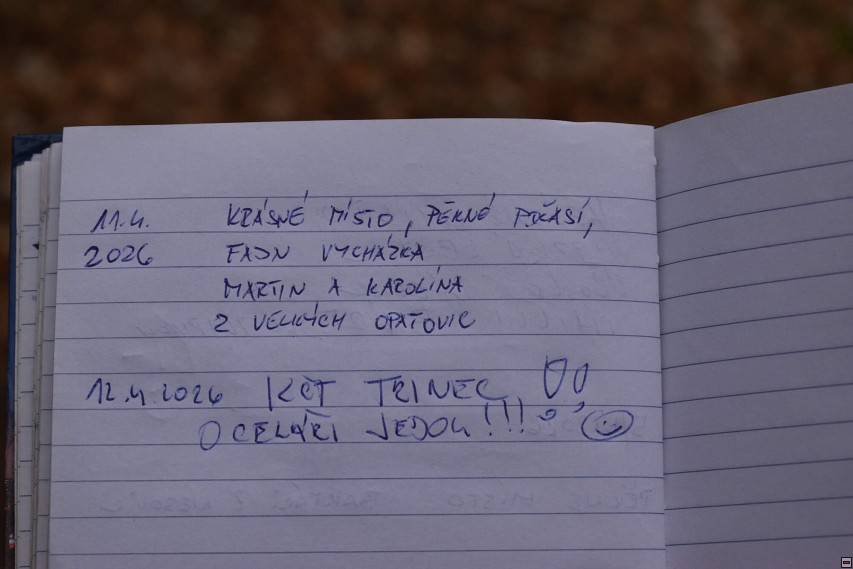 11.4. KRÁSNÉ MÍSTO, PĚKNÉ POČASÍ,
2026 FAJN VYCHÁZKA
MARTIN A KAROLÍNA
Z VELKÝCH OPATOVIC
12.4.2026 KČT TŘINEC !!
OCELÁŘI JEDOU!!!